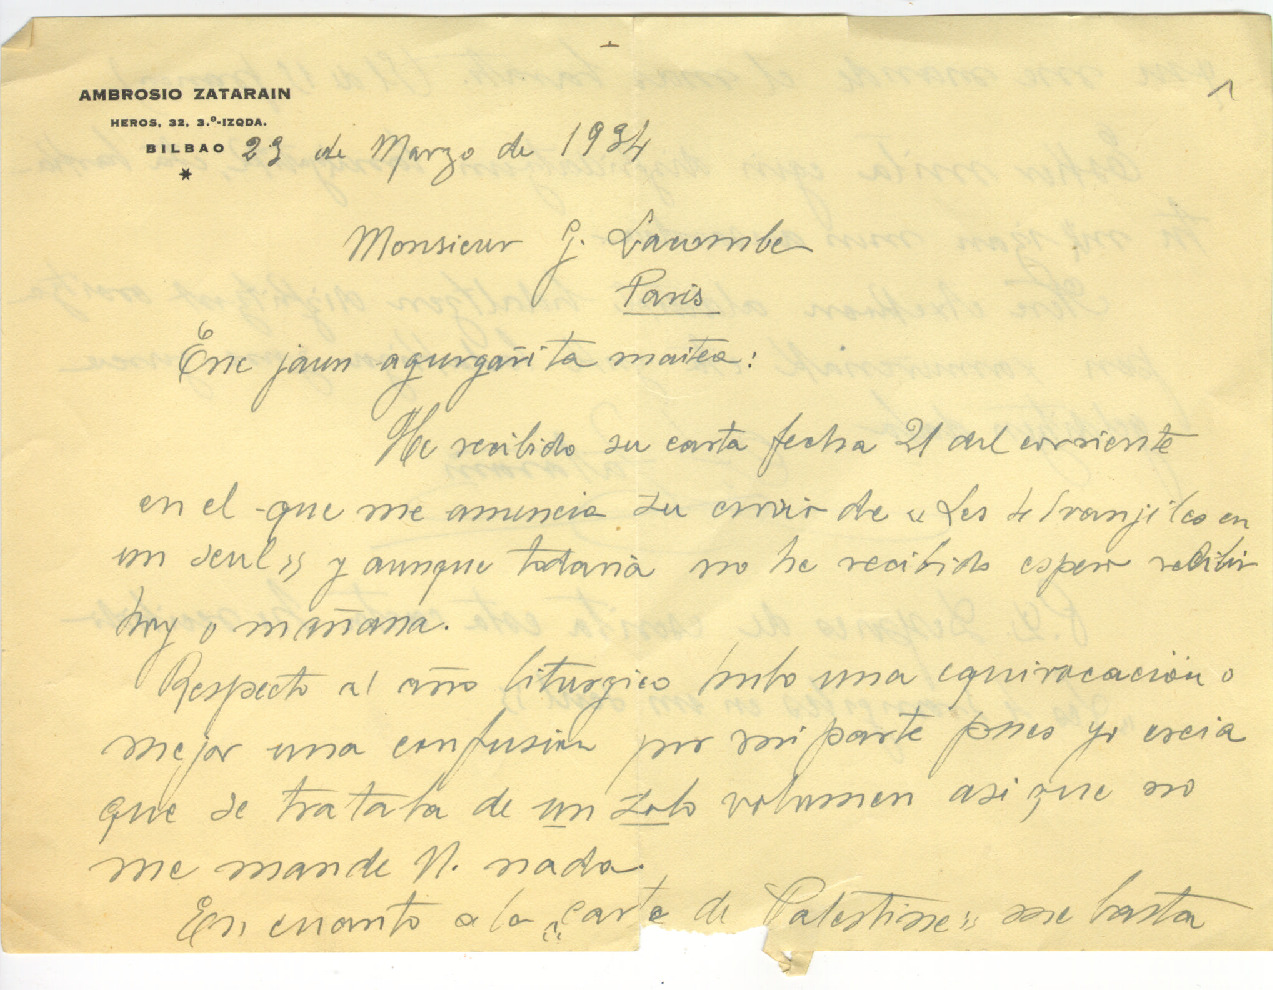 AMBROSIO ZATARAIN
HEROS, 32, 3.º-IZQDA.
BILBAO 23 de Marzo de 1934
Monsieur G. Lacombe
Paris
Ene jaun agurgarrita maitea:
He recibido su carta fecha 21 del corriente
en el que me anuncia su envio de "Les 4 Evanjiles en
un seul" y aunque todavia no he recibido espero recibir
hoy o mañana.
Respecto al año liturgico hubo una equivocación o
mejor una confusion por mi parte pues yo creia
que se trataba de un solo volumen asi que no
me mande V. nada.
En cuanto a la "Carte de Palestine" me basta